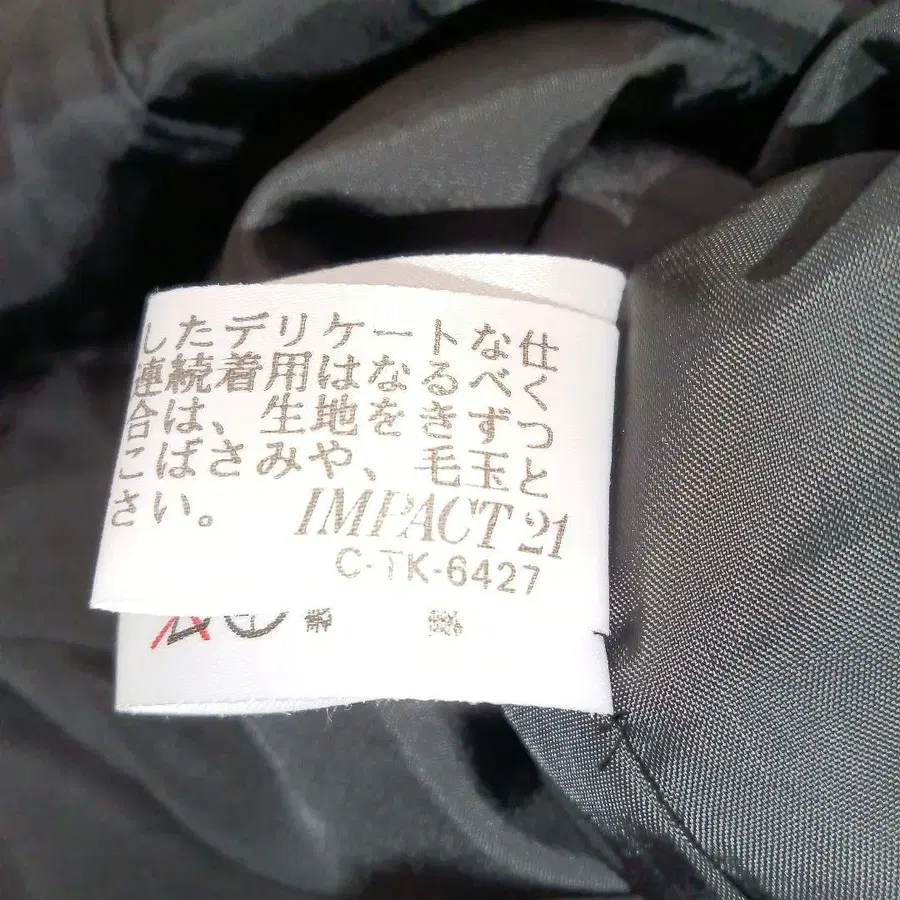 したデリケートな仕
連続着用はなるべく
合は、生地をきずつ
こぼさみや、毛玉と
さい。
IMPACT 21
C-TK-6427